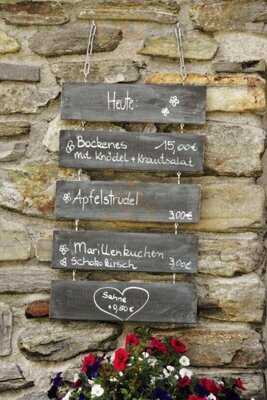 Heute:
Backenes 15,00
mit Knödel + Krautsalat
Apfelstrudel
3,00€
Marillenkuchen
Schokokirsch 3,00€
Sahne
+0,80€